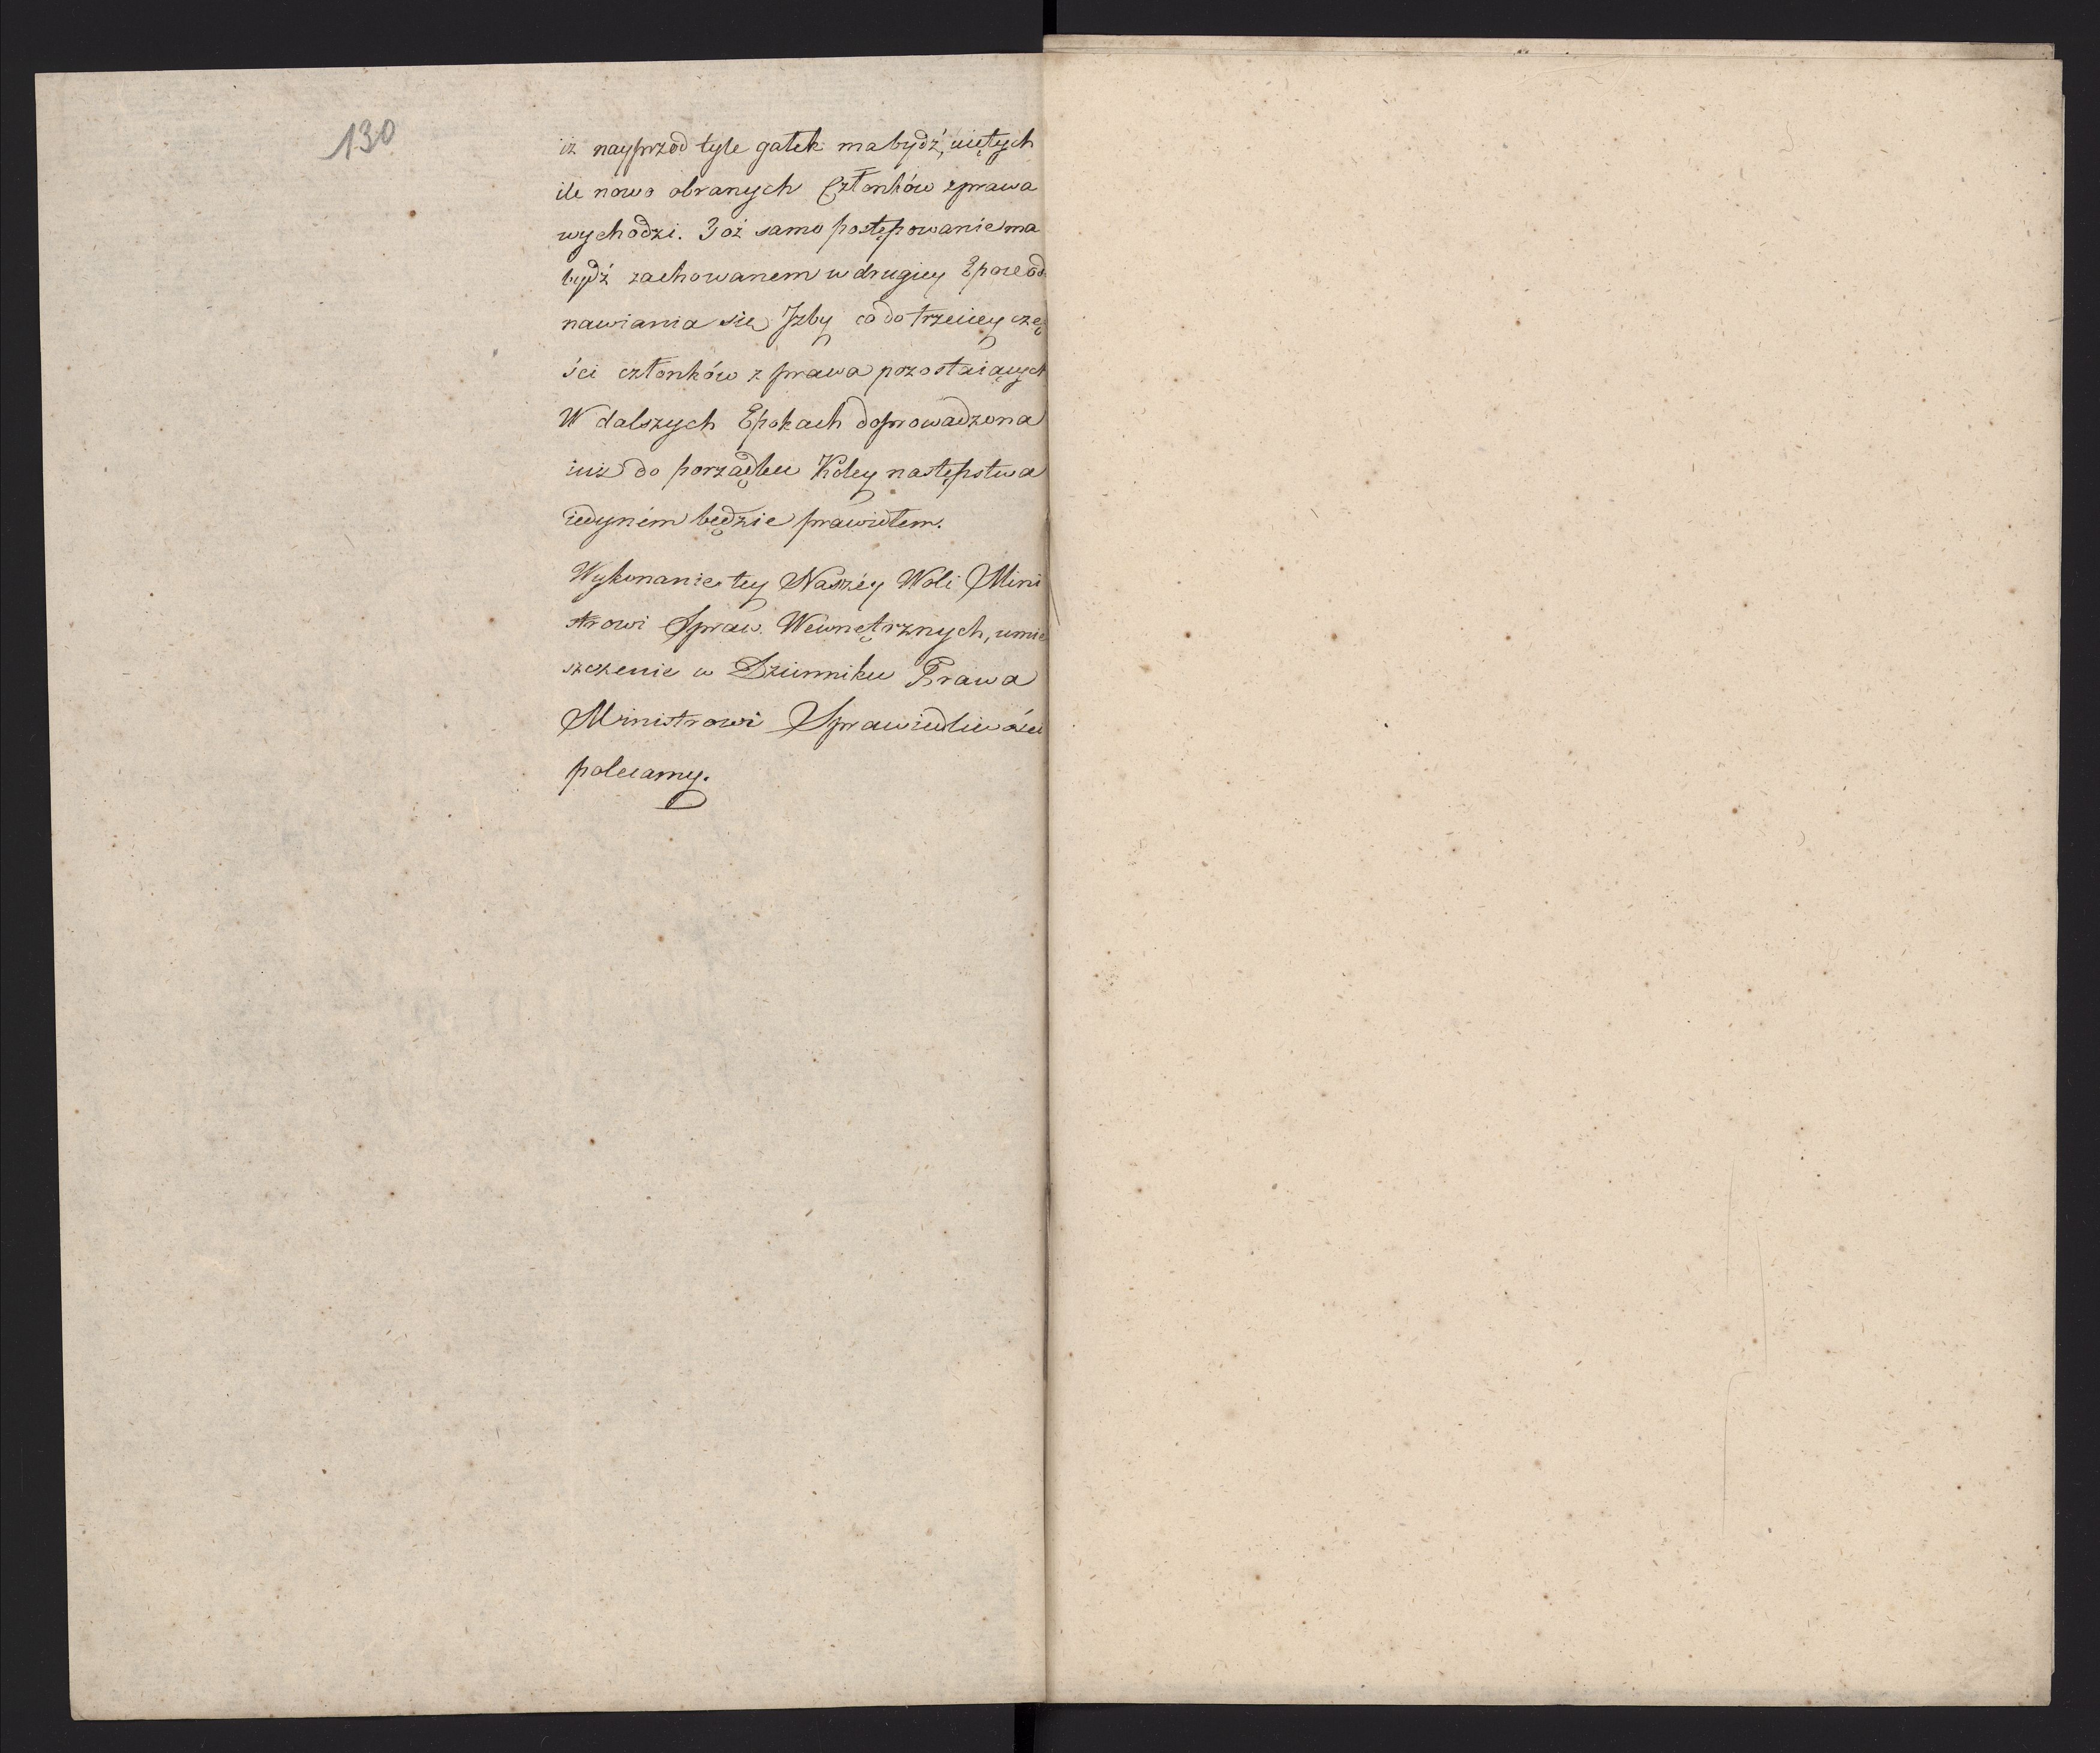 130
iż nayprzód tyle gałek ma bydź, uiętych
ile nowo obranych Członków z prawa
wychodzi. Toż samo postępowanie ma
bydź zachowanem w drugiey Epoce od
nawiania się Izby co do trzeciey czę
ści członków z prawa pozostaiących
W dalszych Epokach doprowadzona
iuż do porządku Koley następstwa
iedyném będzie prawidłem.
Wykonanie tey Naszéy Woli Mini
strowi Spraw. Wewnętrznych, umie
szczenie w Dzienniku Prawa
Ministrowi Sprawiedliwości
polecamy.